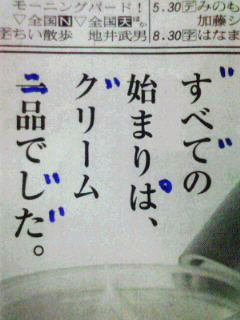 モーニングバード！
▽全国N▽全国天ほか
字ちい散歩　地井武男
5.30字みのも
加藤シ
8.30字はなま
ずべでの
始まりぱ、
グリーム
二品でじだ。